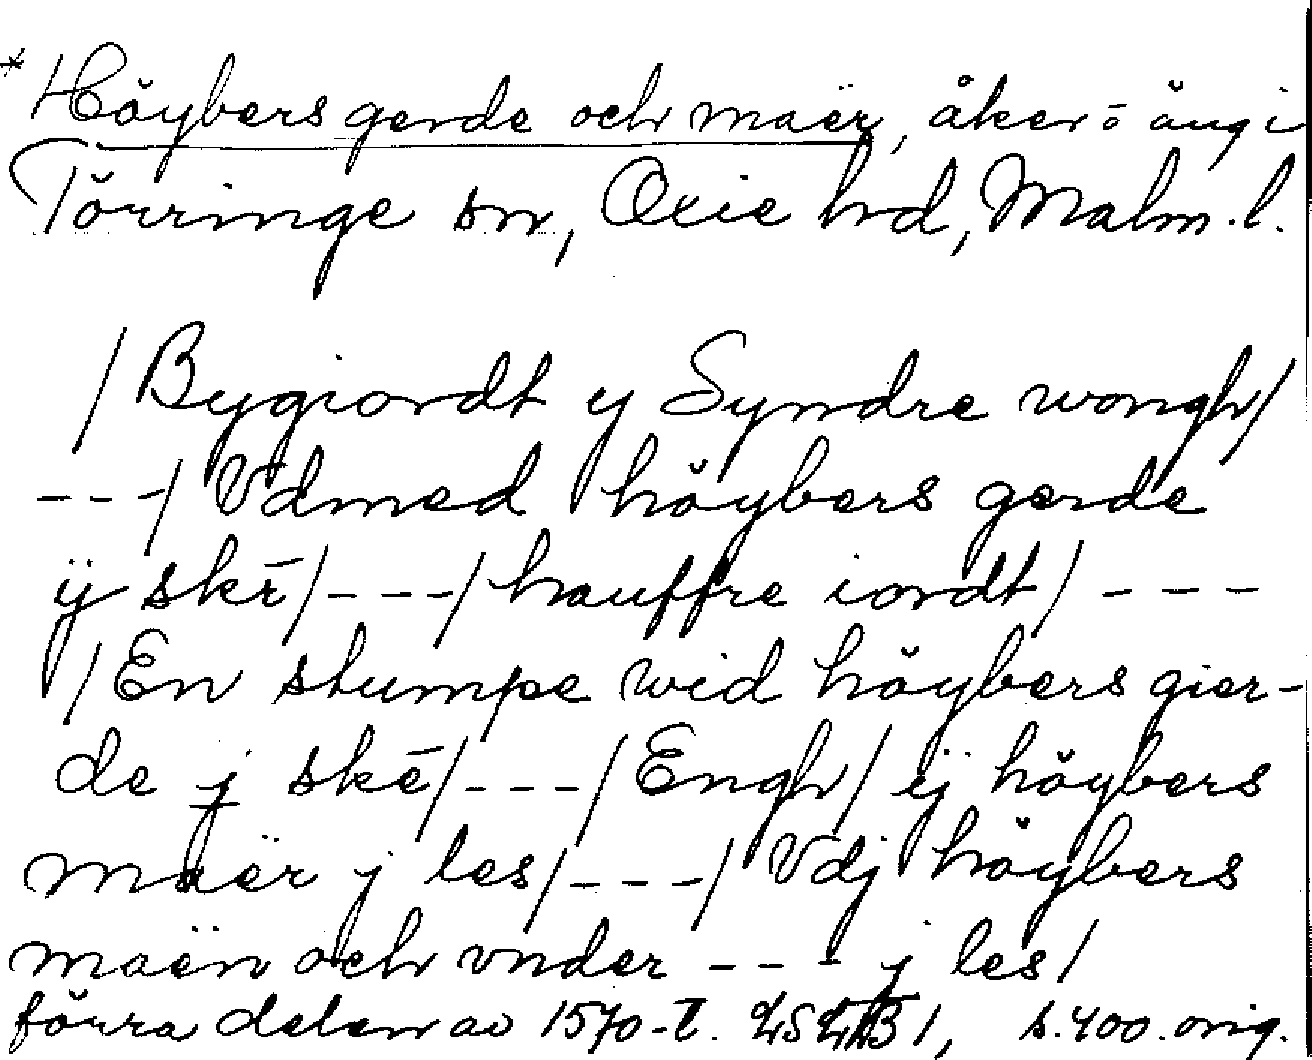 * Höybers gerde och maër, åker- o äng i
Törringe sn, Oxie hd, Malm. l.
/Bygiordt y Syndre wongh/
---/ Vdmed höybers gerde
ÿ skē/---/hauffre iordt/---
/En stumpe wid höybers gier-
de j skē/---/Engh/ ij höybers
maër j les/---/Vdj höybers
maën och vnder --- j les/
förra delen av 1570-t. s. 400. orig.